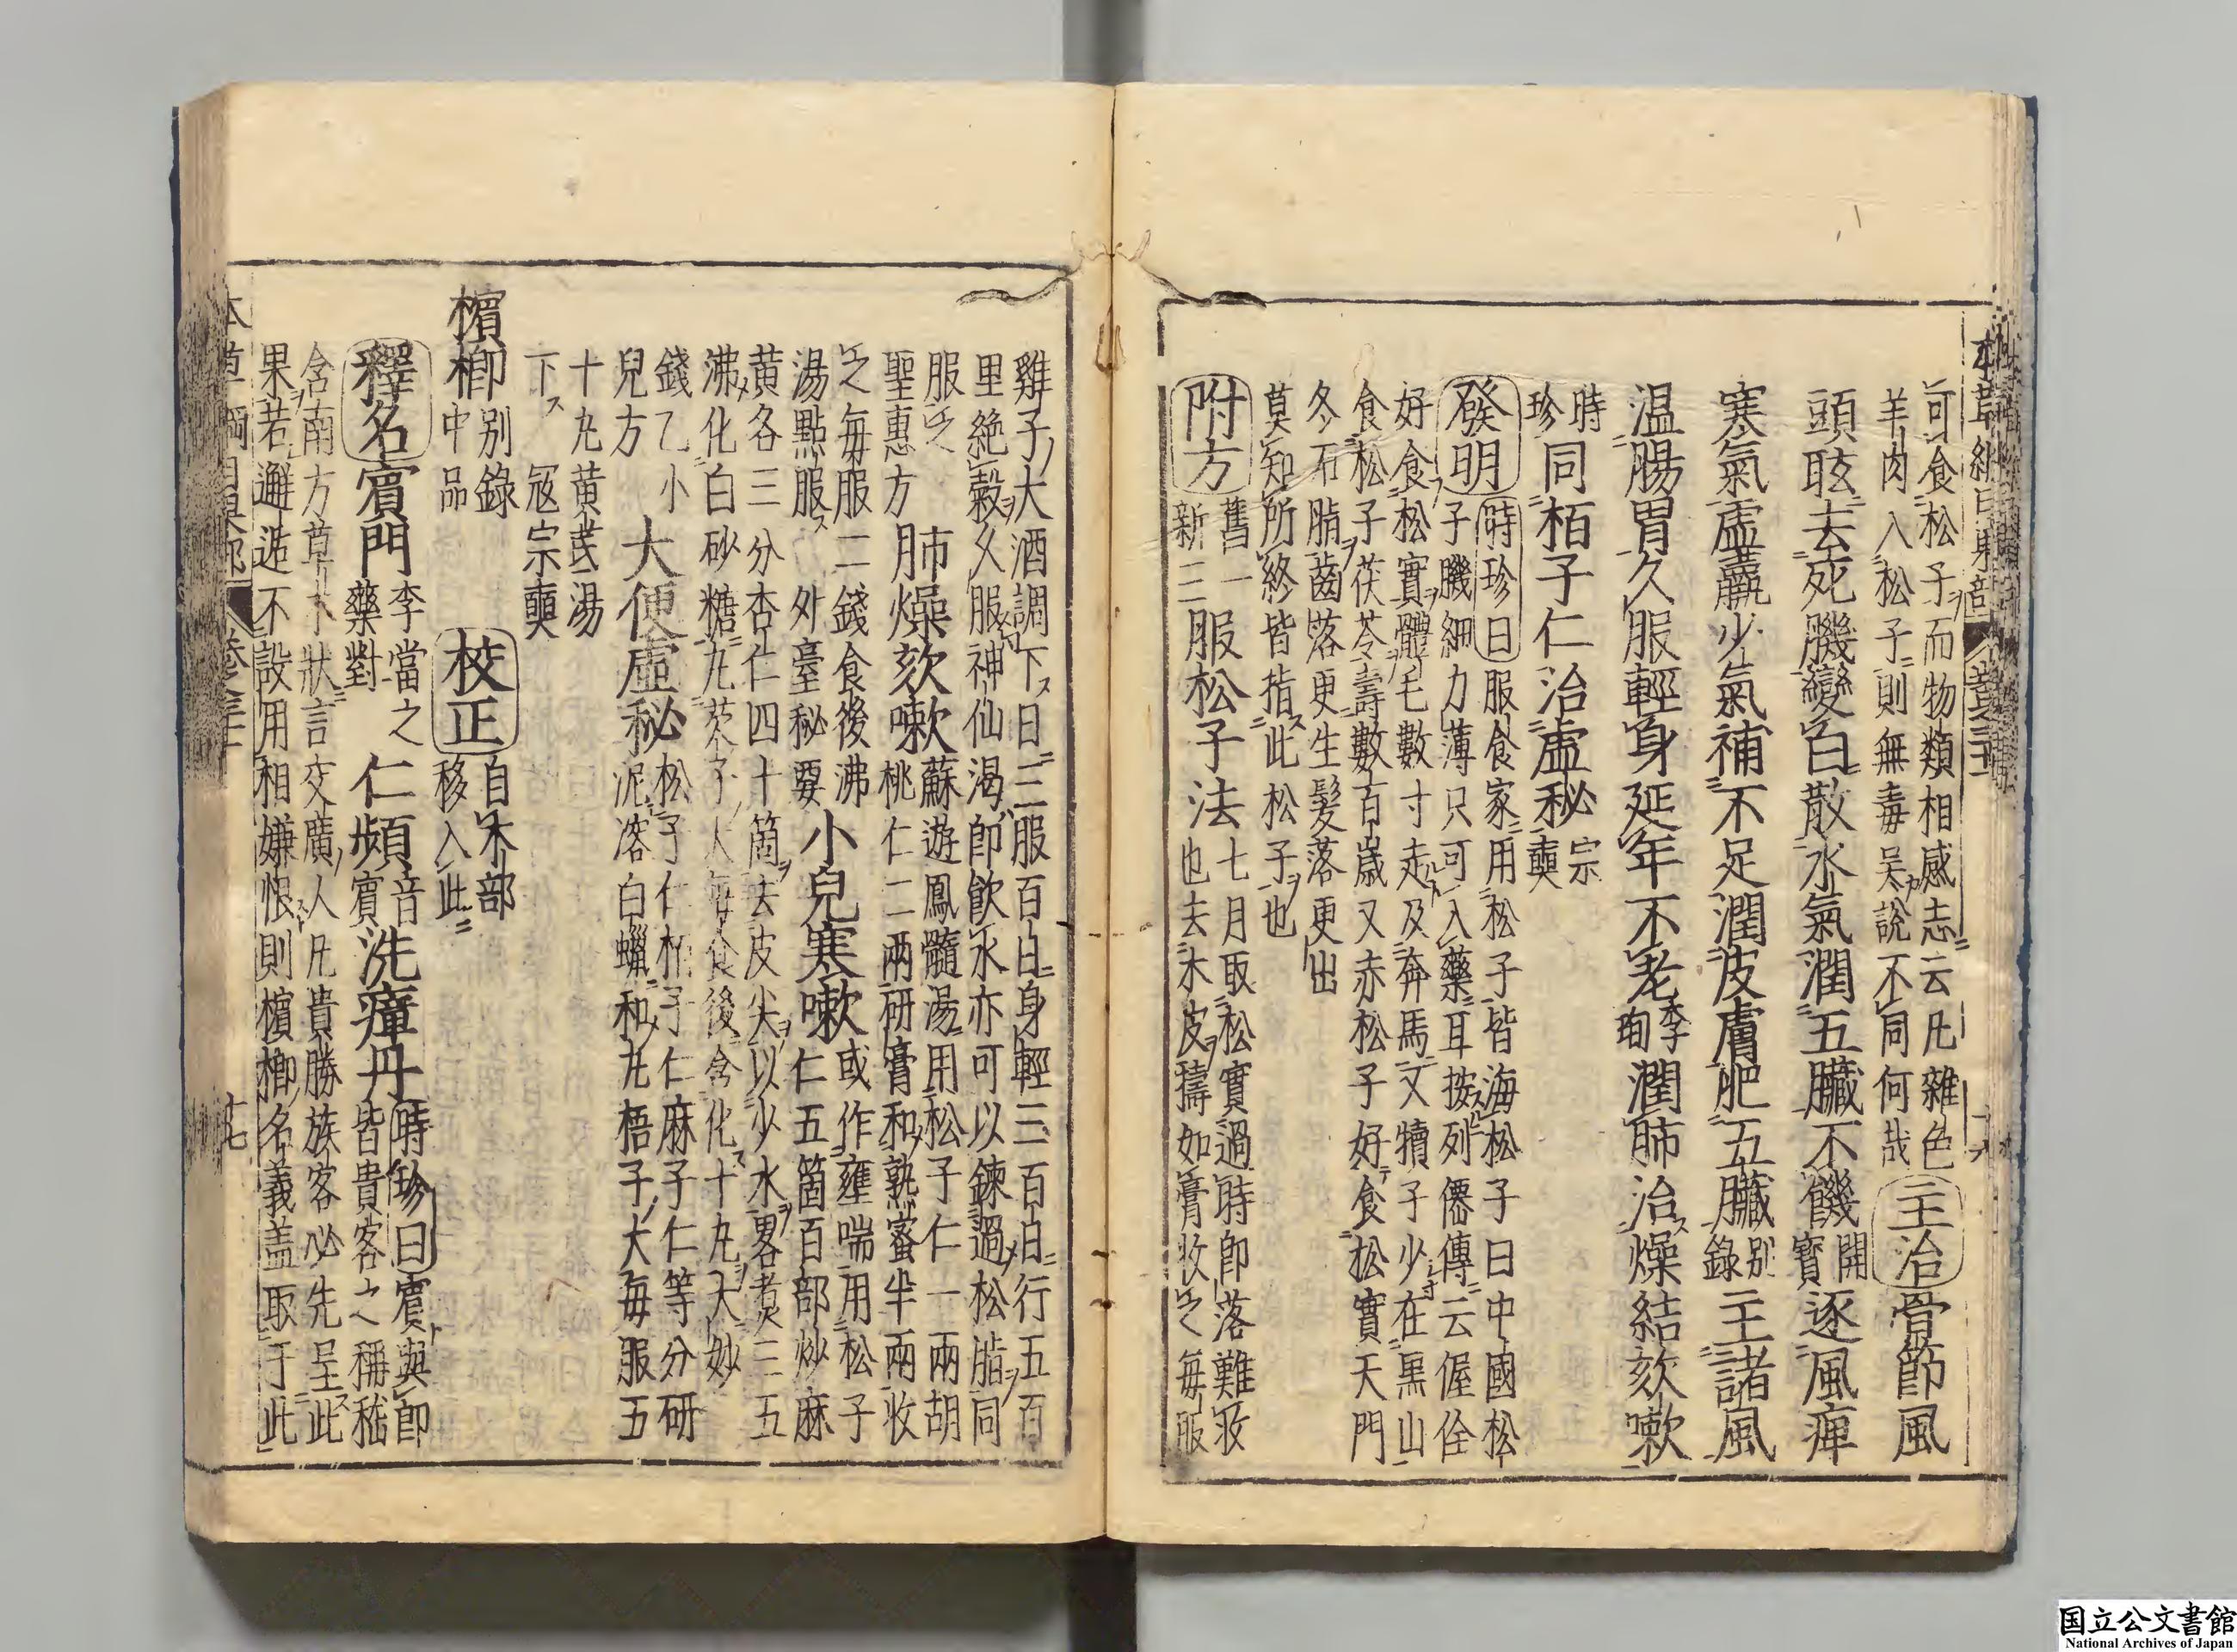 可食松子而物類相感志云凡雜色
羊肉入松子則無毒吳說不同何哉
主治骨節風
頭眩去死肌變白散水氣潤五臟不饑開寶逐風痺
寒氣虛羸少氣補不足潤皮膚肥五臟別錄主諸風
温腸胃久服輕身延年不老李珣潤肺治燥結欬嗽
時珍同栢子仁治虛秘宗奭
發明時珍曰服食家用松子皆海松子曰中國松
子肌細力薄只可入藥耳按列僊傳云偓佺
好食松實體毛數寸走及奔馬又犢子少在黑山
食松子茯苓壽數百歲又赤松子好食松實天門
冬石脂齒落更生髮落更出
莫知所終皆指此松子也
附方舊一新三服松子法七月取松實過時即落難收
也去木皮擣如膏收之每服
雞子大酒調下日三服百日身輕三百日行五百
里絶穀久服神仙渴即飲水亦可以鍊過松脂同
服之
聖惠方
肺燥欬嗽蘇遊鳳髓湯用松子仁一兩胡
桃仁二兩研膏和熟蜜半兩收
之每服二錢食後沸
湯點服外臺秘要
小兒寒嗽或作壅喘用松子
仁五箇百部炒麻
黄各三分杏仁四十箇去皮尖以少水畧煮三五
沸化白砂糖丸芡子大每食後含化十丸大妙
錢乙小
兒方
大便虛秘松子仁柏子仁麻子仁等分研
泥溶白蠟和丸梧子大每服五
十丸黄芪湯
下寇宗奭
檳榔別錄中品校正自木部移入此
釋名賓門李當之藥對仁頻音賓洗瘴丹時珍曰賓與郎
皆貴客之稱嵇
含南方草木狀言交廣人凡貴勝族客必先呈此
果若邂逅不設用相嫌恨則檳榔名義盖取于此
十七
国立公文書館
National Archives of Japan